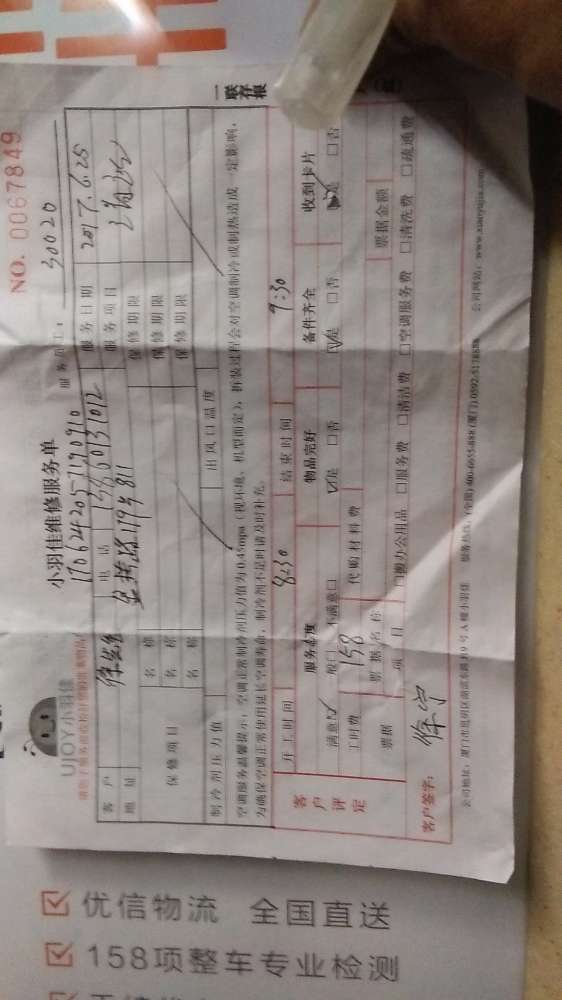 NO. 0067849
小羽佳维修服务单
UJOY小羽佳
服务员工： 30020
1706242057190910
一联存根
客户 电话 13860131012 服务日期 2017.6.25
地址 811 服务项目
保修项目 名称 保修期限
名称 保修期限
名称 保修期限
制冷剂压力值 出风口温度
空调服务温馨提示：空调正常制冷剂压力值为0.45mpa（视环境、机型而定），拆装过程会对空调制冷或制热造成一定影响，
为确保空调正常使用延长空调寿命，制冷剂不足时请及时补充。
客户评定
开工时间 8:30 结束时间 9:30
服务态度 物品完好 备件齐全 收到卡片
满意☑ 一般□ 不满意□ ☑是 □否 ☑是 □否 ☑是 □否
工时费 158 代购材料费
票据 票据名称 票据金额
项目 □搬办公用品 □服务费 □清洁费 □空调服务费 □清洗费 □疏通费
客户签字： 徐宁
公司地址：厦门市思明区湖滨东路319号A幢小羽佳 服务热线：(全国)400-6655-888 (厦门)0592-5178888 公司网站：www.xiaoyujia.com
优信物流 全国直送
158项整车专业检测